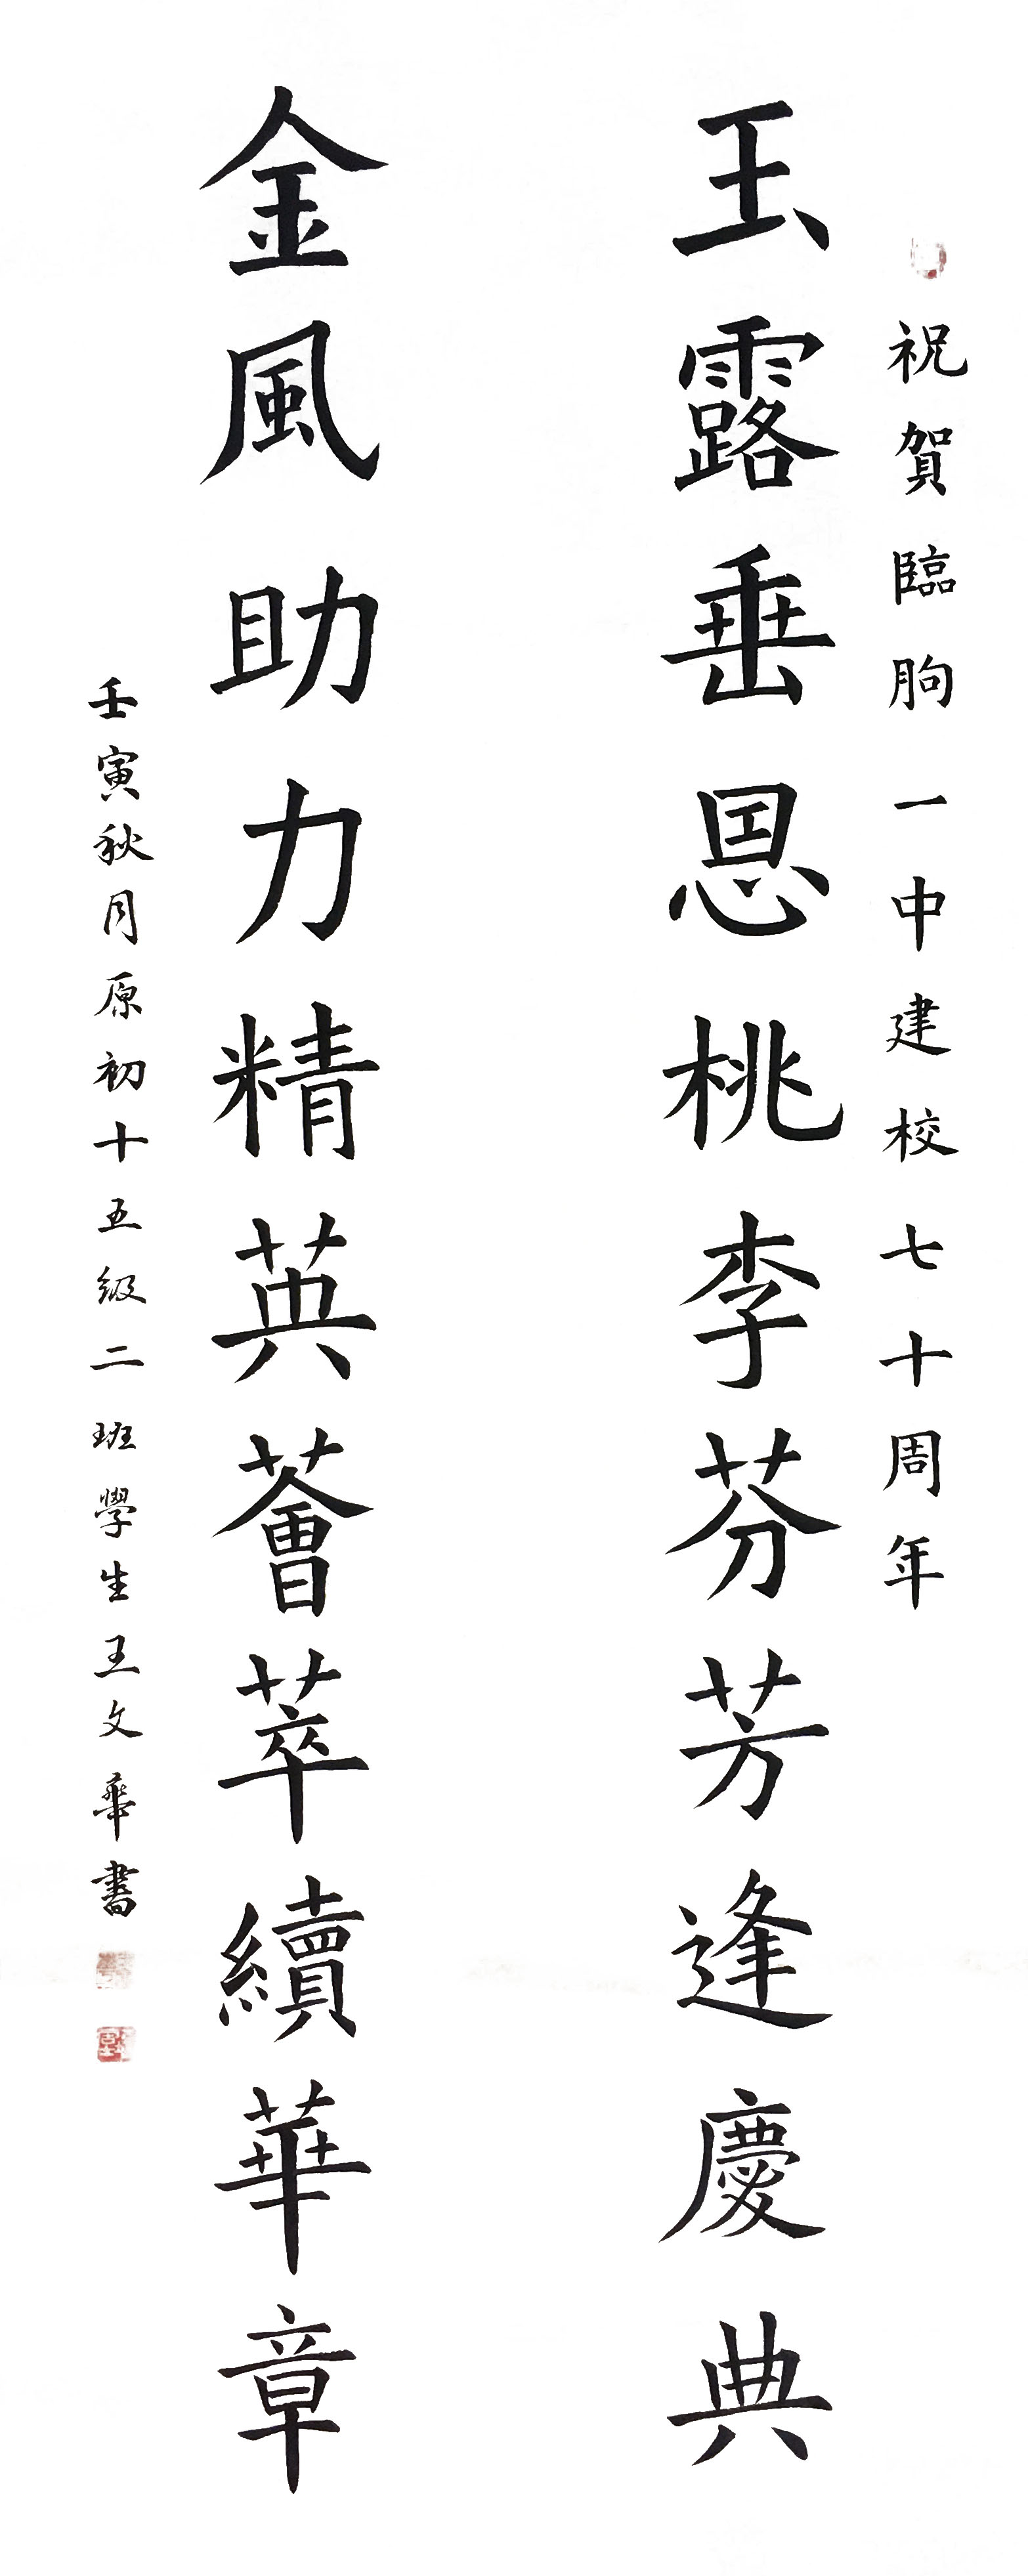 祝賀臨朐一中建校七十周年
玉露垂恩桃李芬芳逢慶典
金風助力精英薈萃續華章
壬寅秋月原初十五級二班學生王文華書